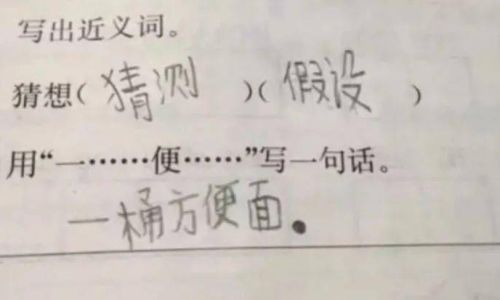 写出近义词。
猜想(猜测)(假设)
用“一……便……”写一句话。
一桶方便面.